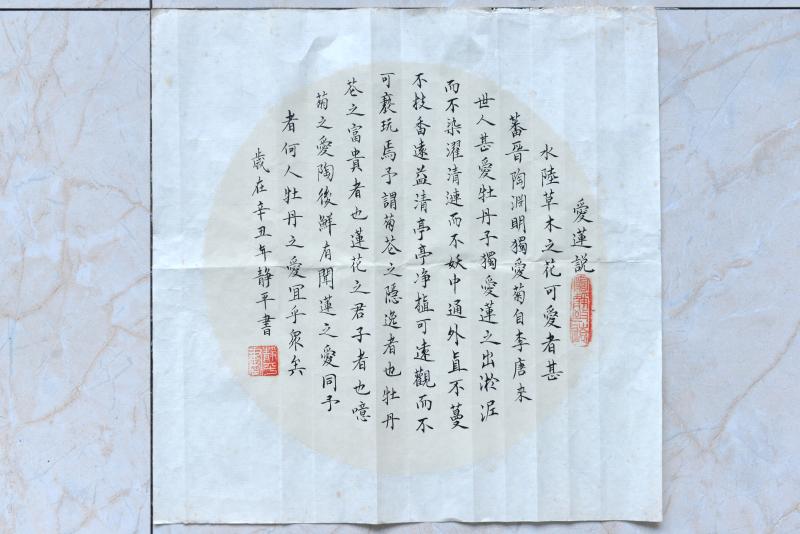 愛蓮説
水陸草木之花可愛者甚
蕃晋陶淵明獨愛菊自李唐来
世人甚愛牡丹予獨愛蓮之出淤泥
而不染濯清漣而不妖中通外直不蔓
不枝香遠益清亭亭净植可遠觀而不
可褻玩焉予謂菊花之隐逸者也牡丹
花之富貴者也蓮花之君子者也噫
菊之愛陶後鮮有聞蓮之愛同予
者何人牡丹之愛宜乎衆矣
歲在辛丑年静平書